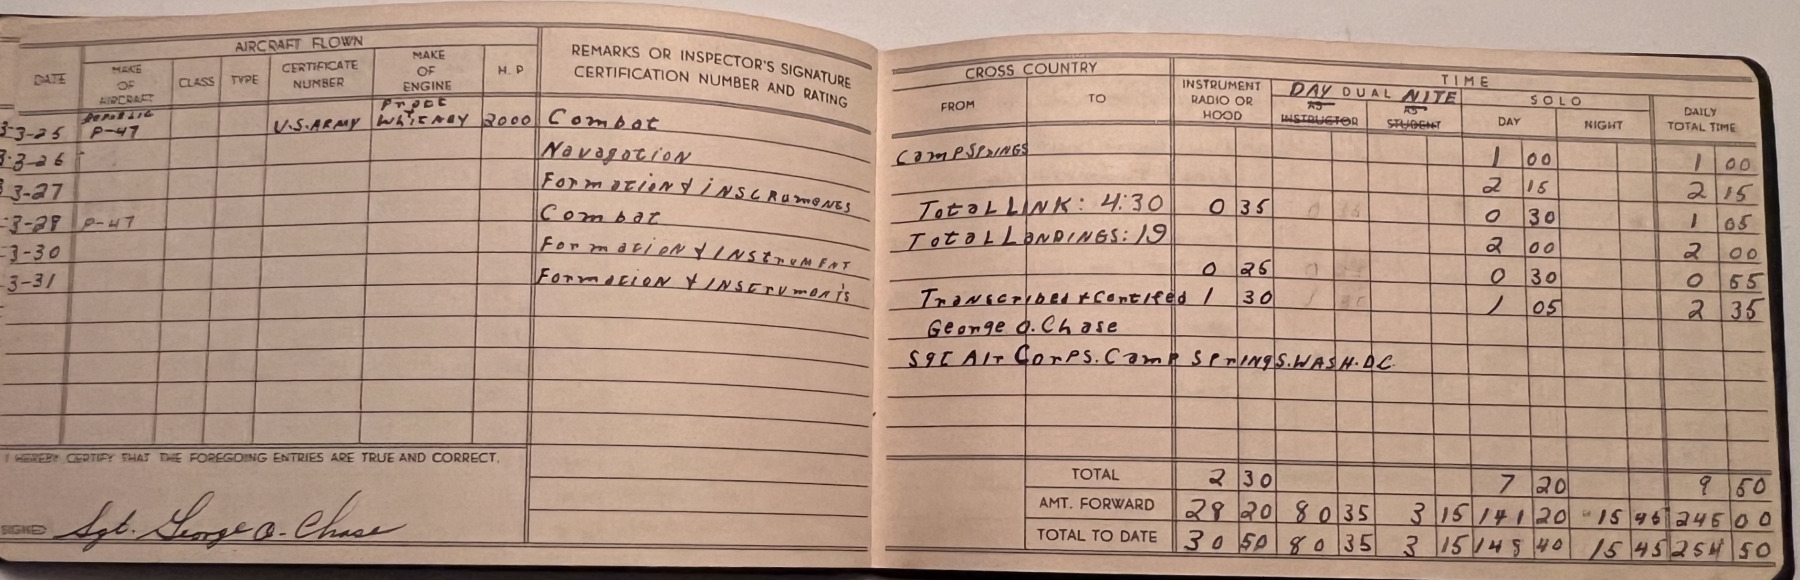 AIRCRAFT FLOWN
DATE MAKE OF AIRCRAFT CLASS TYPE CERTIFICATE NUMBER MAKE OF ENGINE H. P REMARKS OR INSPECTOR'S SIGNATURE CERTIFICATION NUMBER AND RATING
3-25 P-47 U.S.ARMY Whitney 2000 Combat
3-26 Navagation
3-27 Formation & inscruments
3-28 P-47 Combat
3-30 Formation & INSTRUMENT
3-31 Formation & INSTruments
I HEREBY CERTIFY THAT THE FOREGOING ENTRIES ARE TRUE AND CORRECT.
SIGNED Sgt. George O. Chase
CROSS COUNTRY TIME
FROM TO INSTRUMENT RADIO OR HOOD DAY DUAL NITE AS INSTRUCTOR AS STUDENT SOLO DAY NIGHT DAILY TOTAL TIME
Camp Springs 1 00 1 00
2 15 2 15
Total LINK: 4:30 0 35 0 30 1 05
Total LANDINGS: 19 2 00 2 00
0 25 0 30 0 55
Transcribed & Contifed 1 30 1 05 2 35
George O. Chase
Sgt Air Corps. Camp Springs. WASH. DC.
TOTAL 2 30 7 20 9 50
AMT. FORWARD 28 20 80 35 3 15 141 20 15 45 245 00
TOTAL TO DATE 30 50 80 35 3 15 148 40 15 45 254 50